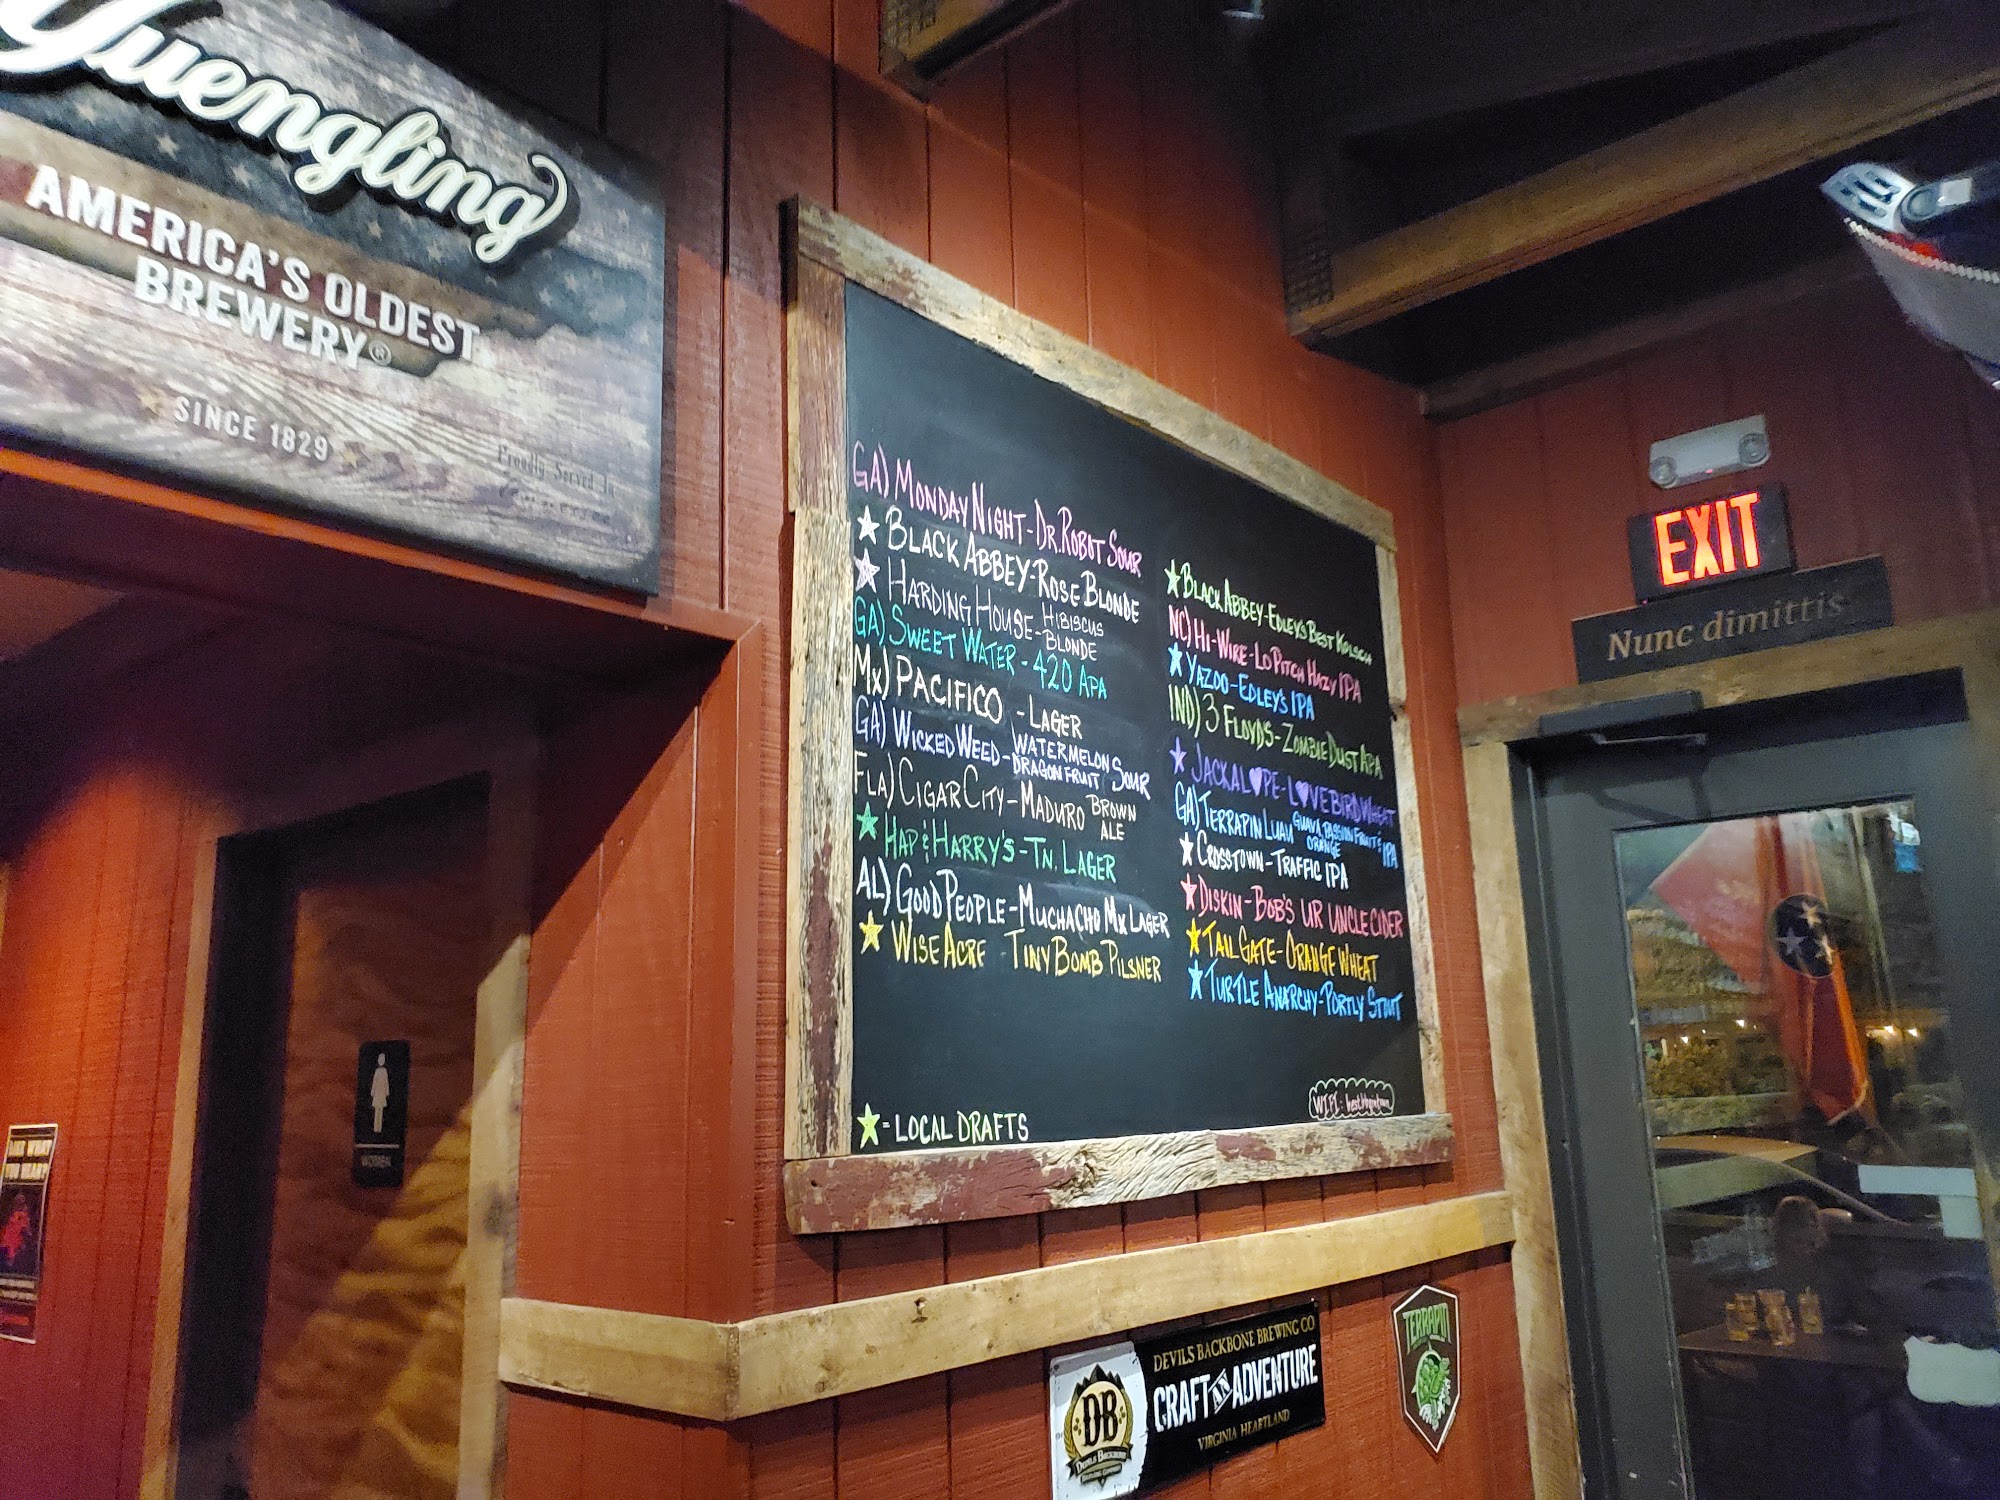 Yuengling
AMERICA'S OLDEST
BREWERY®
SINCE 1829
Proudly Served In
GA) MONDAY NIGHT - DR. ROBOT SOUR
★ BLACK ABBEY - ROSE BLONDE
★ HARDING HOUSE - HIBISCUS
BLONDE
GA) SWEET WATER - 420 APA
MX) PACIFICO - LAGER
GA) WICKED WEED - WATERMELON
DRAGONFRUIT SOUR
FLA) CIGAR CITY - MADURO BROWN
ALE
★ HAP & HARRY'S - TN. LAGER
AL) GOOD PEOPLE - MUCHACHO MX LAGER
★ WISEACRE TINY BOMB PILSNER
★ = LOCAL DRAFTS
★ BLACK ABBEY - EDLEY'S BEST KOLSCH
NC) HI-WIRE - LO PITCH HAZY IPA
★ YAZOO - EDLEY'S IPA
IND) 3 FLOYDS - ZOMBIE DUST APA
★ JACKAL♥PE - L♥VEBIRD WHEAT
GA) TERRAPIN LUAU GUAVA, PASSIONFRUIT &
ORANGE IPA
★ CROSSTOWN - TRAFFIC IPA
★ DISKIN - BOB'S UR UNCLE CIDER
★ TAIL GATE - ORANGE WHEAT
★ TURTLE ANARCHY - PORTLY STOUT
WIFI:
EXIT
Nunc dimittis
WOMEN
DB
DEVILS BACKBONE
DEVILS BACKBONE BREWING CO
CRAFT IN ADVENTURE
VIRGINIA HEARTLAND
TERRAPIN